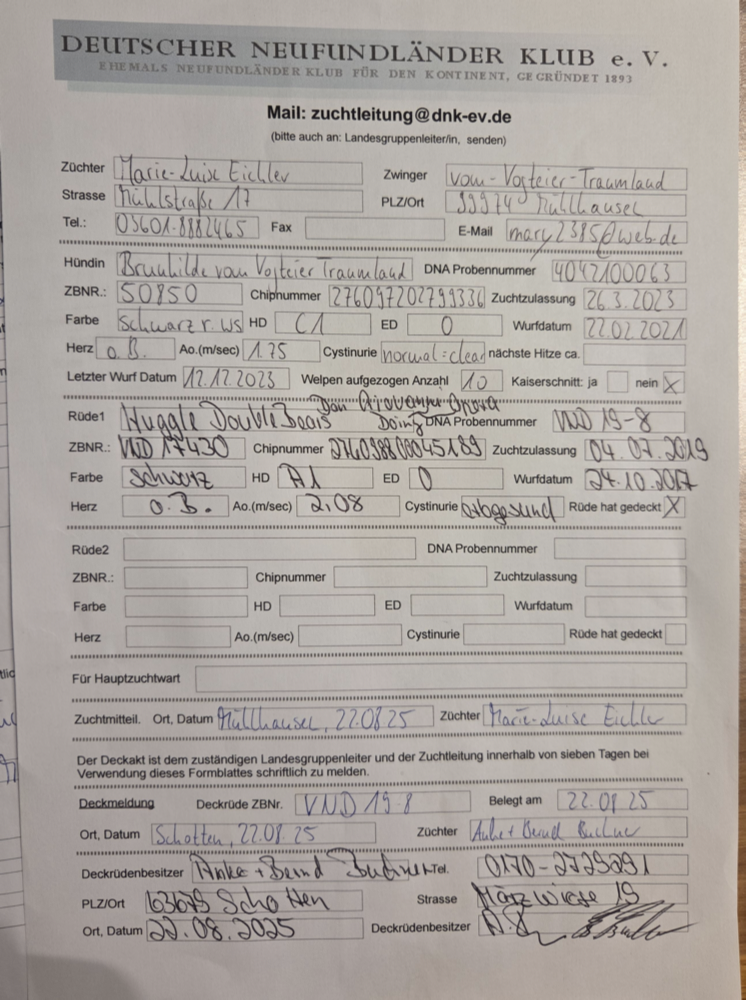 DEUTSCHER NEUFUNDLÄNDER KLUB e. V.
EHEMALS NEUFUNDLÄNDER KLUB FÜR DEN KONTINENT, GEGRÜNDET 1893
Mail: zuchtleitung@dnk-ev.de
(bitte auch an: Landesgruppenleiter/in, senden)
Züchter Marie-Luise Eichler Zwinger vom-Vogteier-Traumland
Strasse Mühlstraße 17 PLZ/Ort 99974 Mühlhausen
Tel.: 03601-8882465 Fax E-Mail mary2385@web.de
Hündin Brunhilde vom Vogteier Traumland DNA Probennummer 4042100063
ZBNR.: 50850 Chipnummer 276097202799336 Zuchtzulassung 26.3.2023
Farbe Schwarz r. ws HD C1 ED 0 Wurfdatum 22.02.2021
Herz o.B. Ao.(m/sec) 1.75 Cystinurie normal=clear nächste Hitze ca.
Letzter Wurf Datum 12.12.2023 Welpen aufgezogen Anzahl 10 Kaiserschnitt: ja nein X
Don
Rüde1 Huggle Double Doing DNA Probennummer VND 19-8
ZBNR.: VND 17430 Chipnummer Zuchtzulassung 04.07.2019
Farbe Schwarz HD A1 ED 0 Wurfdatum 24.10.2017
Herz o.B. Ao.(m/sec) 2,08 Cystinurie Rüde hat gedeckt X
Rüde2 DNA Probennummer
ZBNR.: Chipnummer Zuchtzulassung
Farbe HD ED Wurfdatum
Herz Ao.(m/sec) Cystinurie Rüde hat gedeckt
Für Hauptzuchtwart
Zuchtmitteil. Ort, Datum Mühlhausen, 22.08.25 Züchter Marie-Luise Eichler
Der Deckakt ist dem zuständigen Landesgruppenleiter und der Zuchtleitung innerhalb von sieben Tagen bei
Verwendung dieses Formblattes schriftlich zu melden.
Deckmeldung Deckrüde ZBNr. VND 19 8 Belegt am 22.08.25
Ort, Datum Schotten, 22.08.25 Züchter Anke + Bernd
Deckrüdenbesitzer Anke + Bernd Tel. 0170-2729291
PLZ/Ort 63679 Schotten Strasse Märzwiese 19
Ort, Datum 22.08.2025 Deckrüdenbesitzer